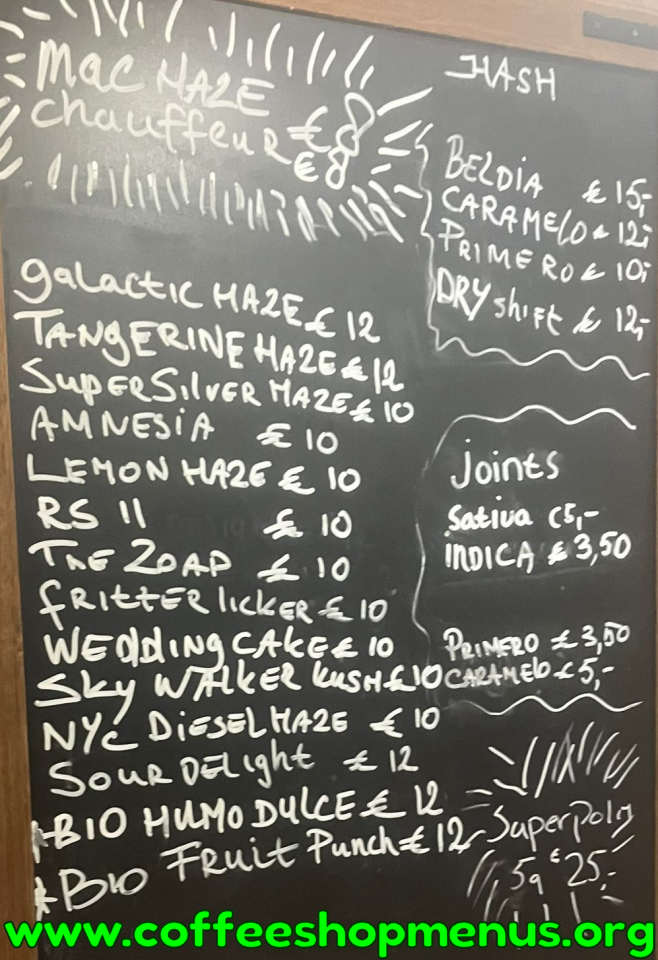 Mac HAZE
chauffeur € 8
€ 8
galactic HAZE € 12
TANGERINE HAZE € 12
SuperSilver HAZE € 10
AMNESiA € 10
LEMON HAZE € 10
RS 11 € 10
The ZOAP € 10
fRITTER licker € 10
WEDding CAKE € 10
Sky WALKER KUSH € 10
NYC DiESEL HAZE € 10
SOUR DELight € 12
*BIO HUMO DULCE € 12
*BIO FRUIT Punch € 12
HASH
BELDIA € 15,-
CARAMELO € 12,-
PRIMERO € 10,-
DRY shift € 12,-
Joints
Sativa €5,-
INDICA € 3,50
PRIMERO € 3,50
CARAMELO € 5,-
Superpolm
,5g € 25,-
www.coffeeshopmenus.org